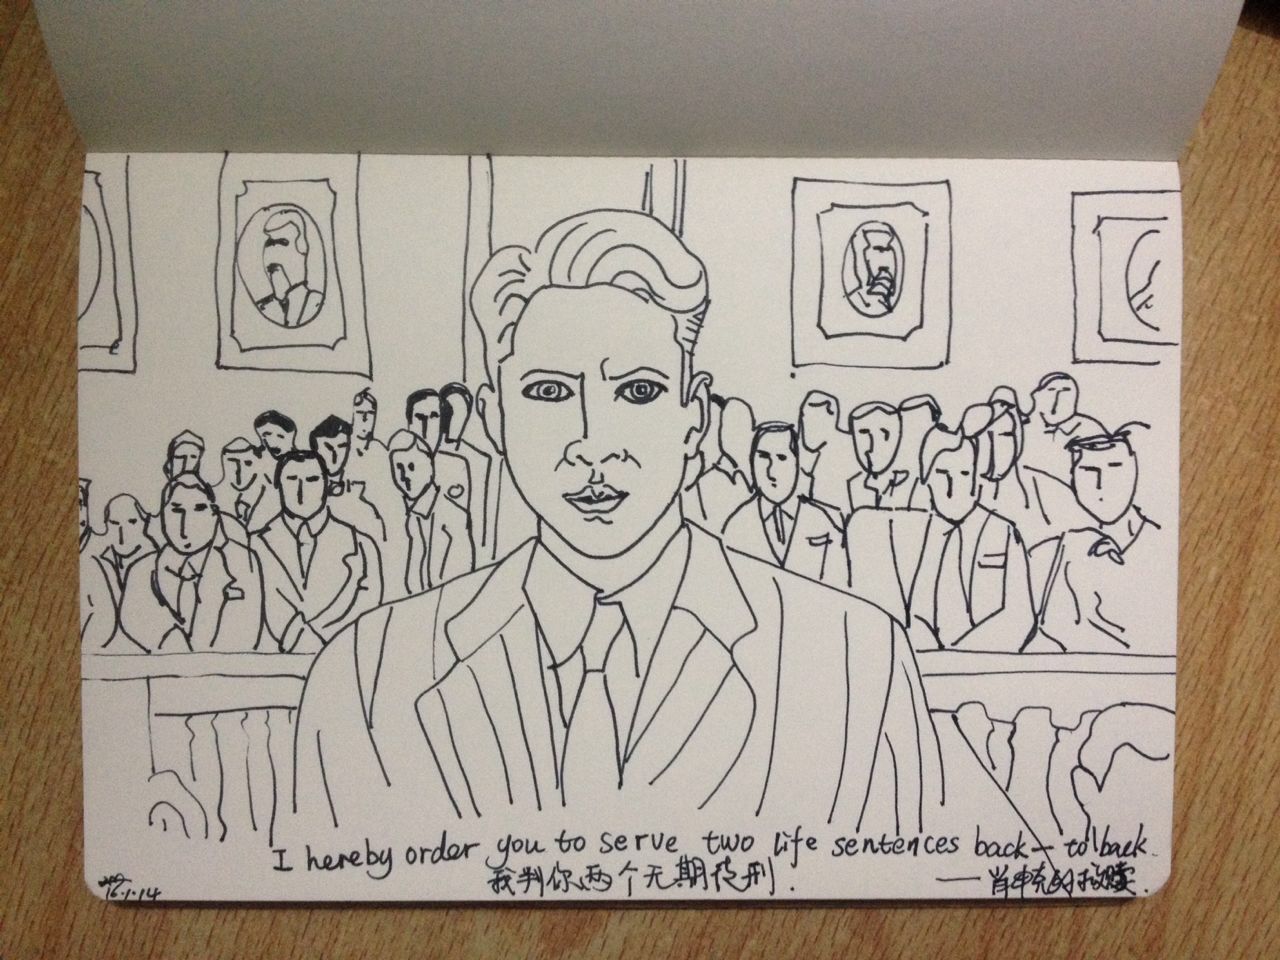 I hereby order you to serve two life sentences back-to back.
我判你两个无期徒刑.
——肖申克的救赎.
16.1.14